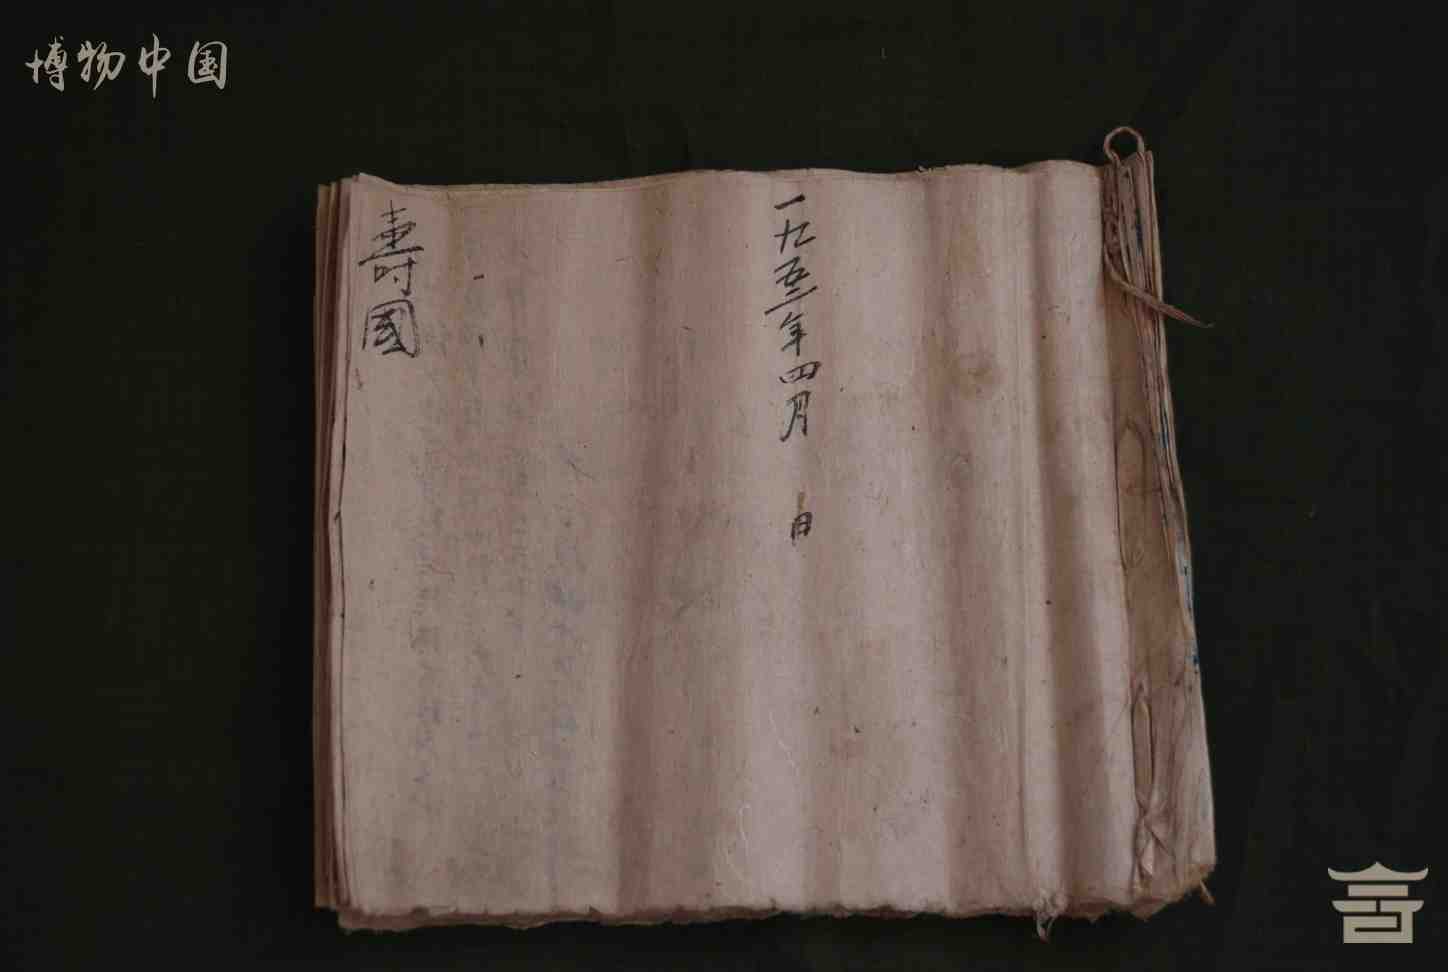 博物中国
一九五二年四月 日
壽國